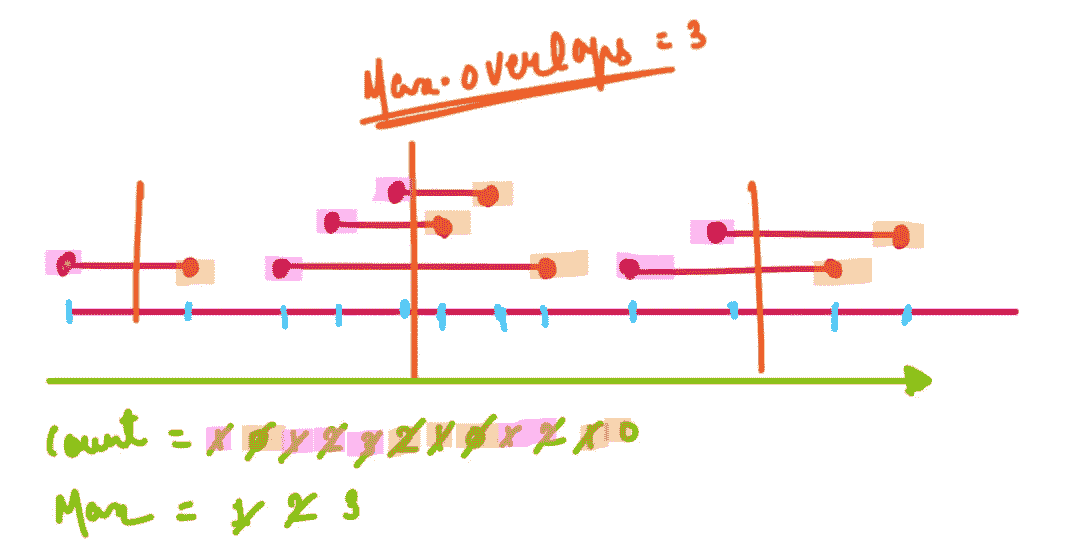 Max. overlaps = 3
Count = 1 0 1 2 3 2 1 0 1 2 1 0
Max = 1 2 3